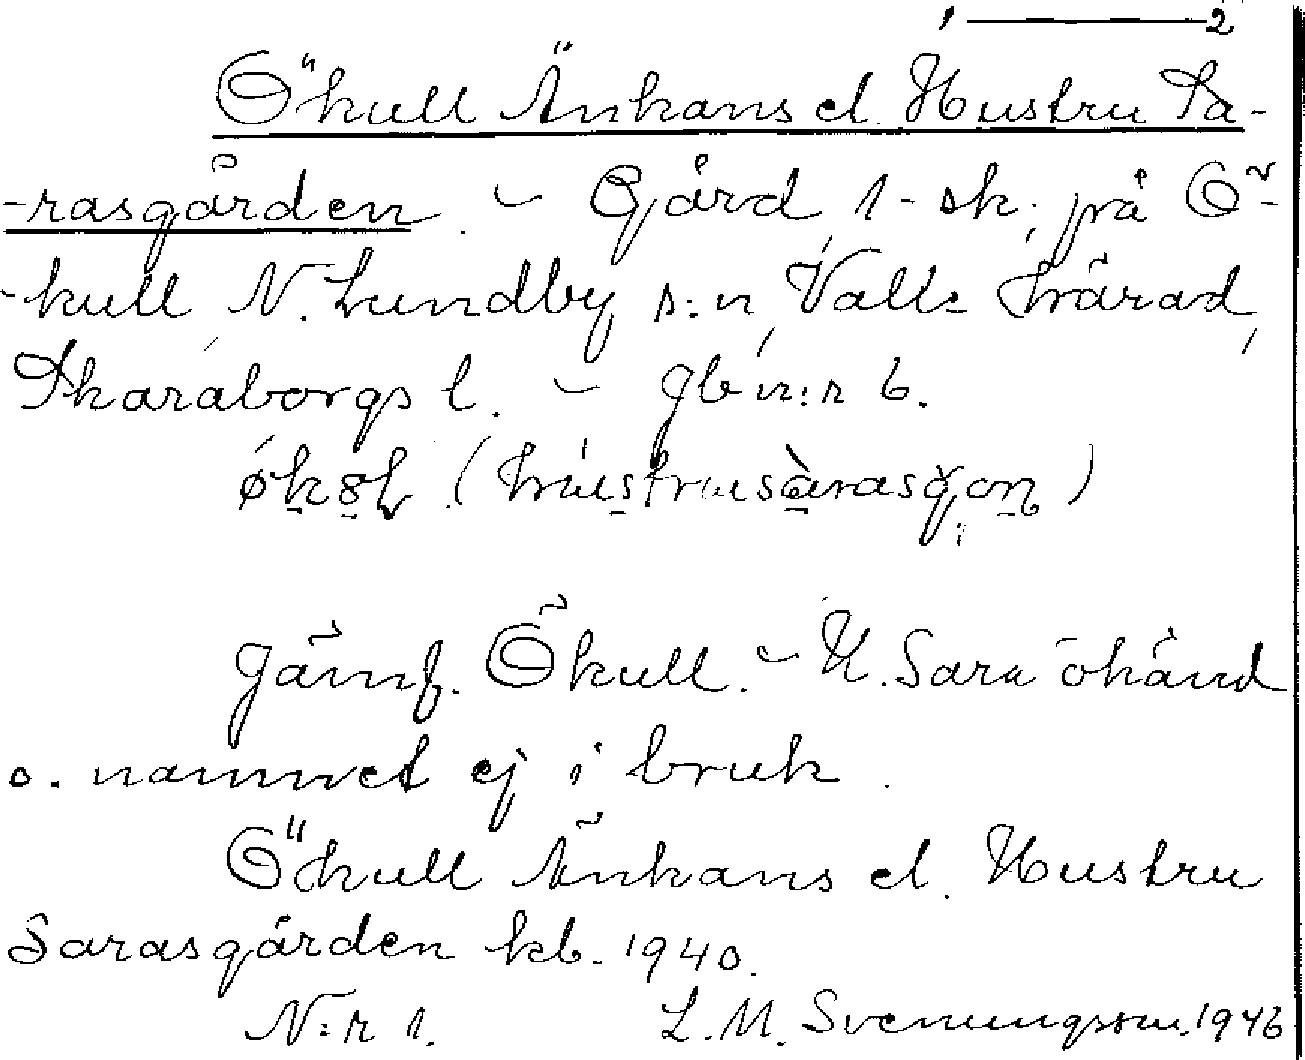 1 — 2
Ökull Änkans el. Hustru Sa-
-rasgården. – Gård, 1-sk. på Ö-
-kull, N. Lundby s:n, Valle härad,
Skaraborgs l. – Jb n:r 6.
Jämf. Ökull. – H. Sara okänd
o. namnet ej i bruk.
Ökull Änkans el. Hustru
Sarasgården kb. 1940.
N:r 1. L. M. Svenungsson. 1946